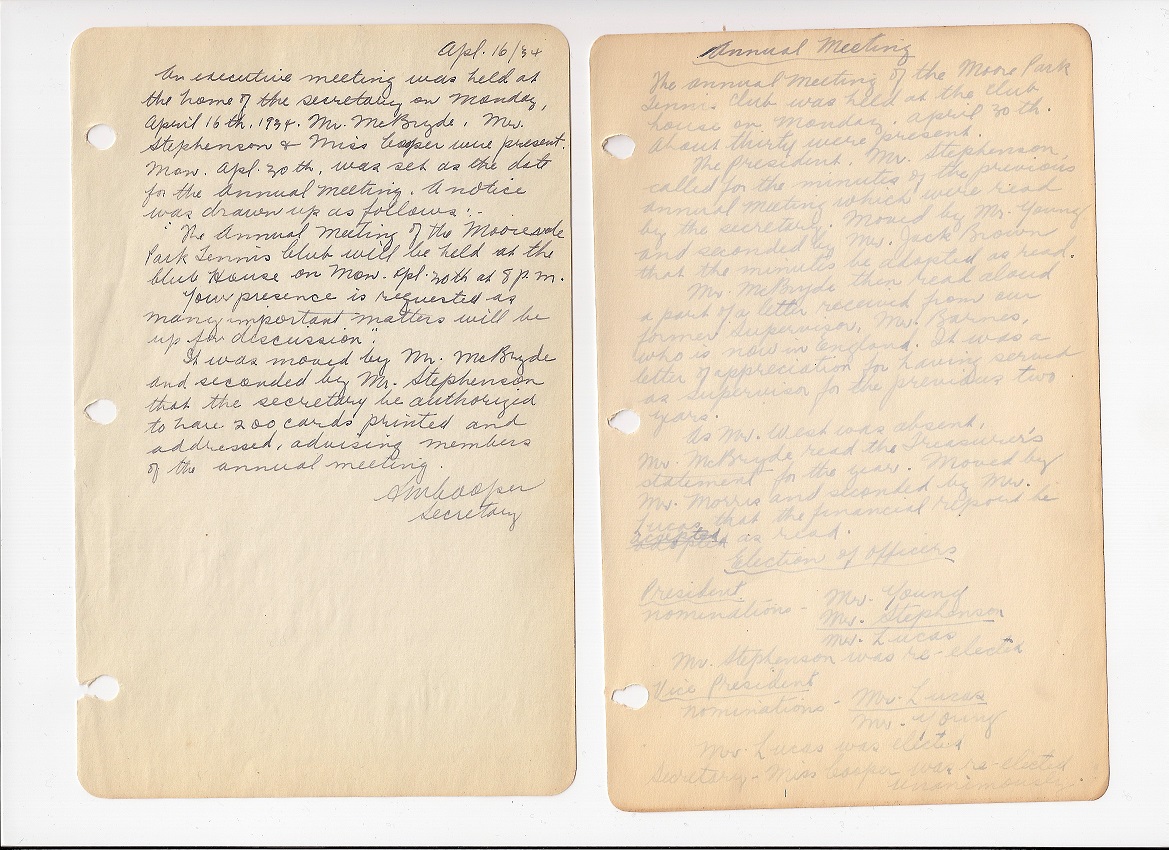 Apl. 16/34
An executive meeting was held at
the home of the secretary on Monday,
April 16th, 1934. Mr. McBryde, Mr.
Stephenson & Miss Cooper were present.
Mon. Apl. 30th, was set as the date
for the Annual Meeting. A notice
was drawn up as follows:-
"The Annual Meeting of the Moore
Park Tennis Club will be held at the
Club House on Mon. Apl. 30th at 8 p.m.
Your presence is requested as
many important matters will be
up for discussion".
It was moved by Mr. McBryde
and seconded by Mr. Stephenson
that the secretary be authorized
to have 200 cards printed and
addressed, advising members
of the annual meeting.
Cooper
Secretary
Annual Meeting
The annual meeting of the Moore Park
Tennis Club was held at the Club
house on Monday, April 30th.
About thirty were present.
The President, Mr. Stephenson,
called for the minutes of the previous
annual meeting which were read
by the secretary. Moved by Mr. Young
and seconded by Mr. Jack Brown
that the minutes be adopted as read.
Mr. McBryde then read aloud
a part of a letter received from our
former Supervisor, Mr. Barnes,
who is now in England. It was a
letter of appreciation for having served
as Supervisor for the previous two
years.
As Mr. West was absent,
Mr. McBryde read the Treasurer's
statement for the year. Moved by
Mr. Morris and seconded by Mr.
Lucas that the financial report be
accepted as read.
Election of Officers
President
nominations - Mr. Young
Mr. Stephenson
Mr. Lucas
Mr. Stephenson was re-elected
Vice President
nominations - Mr. Lucas
Mr. Young
Mr. Lucas was elected
Secretary - Miss Cooper was re-elected
unanimously.